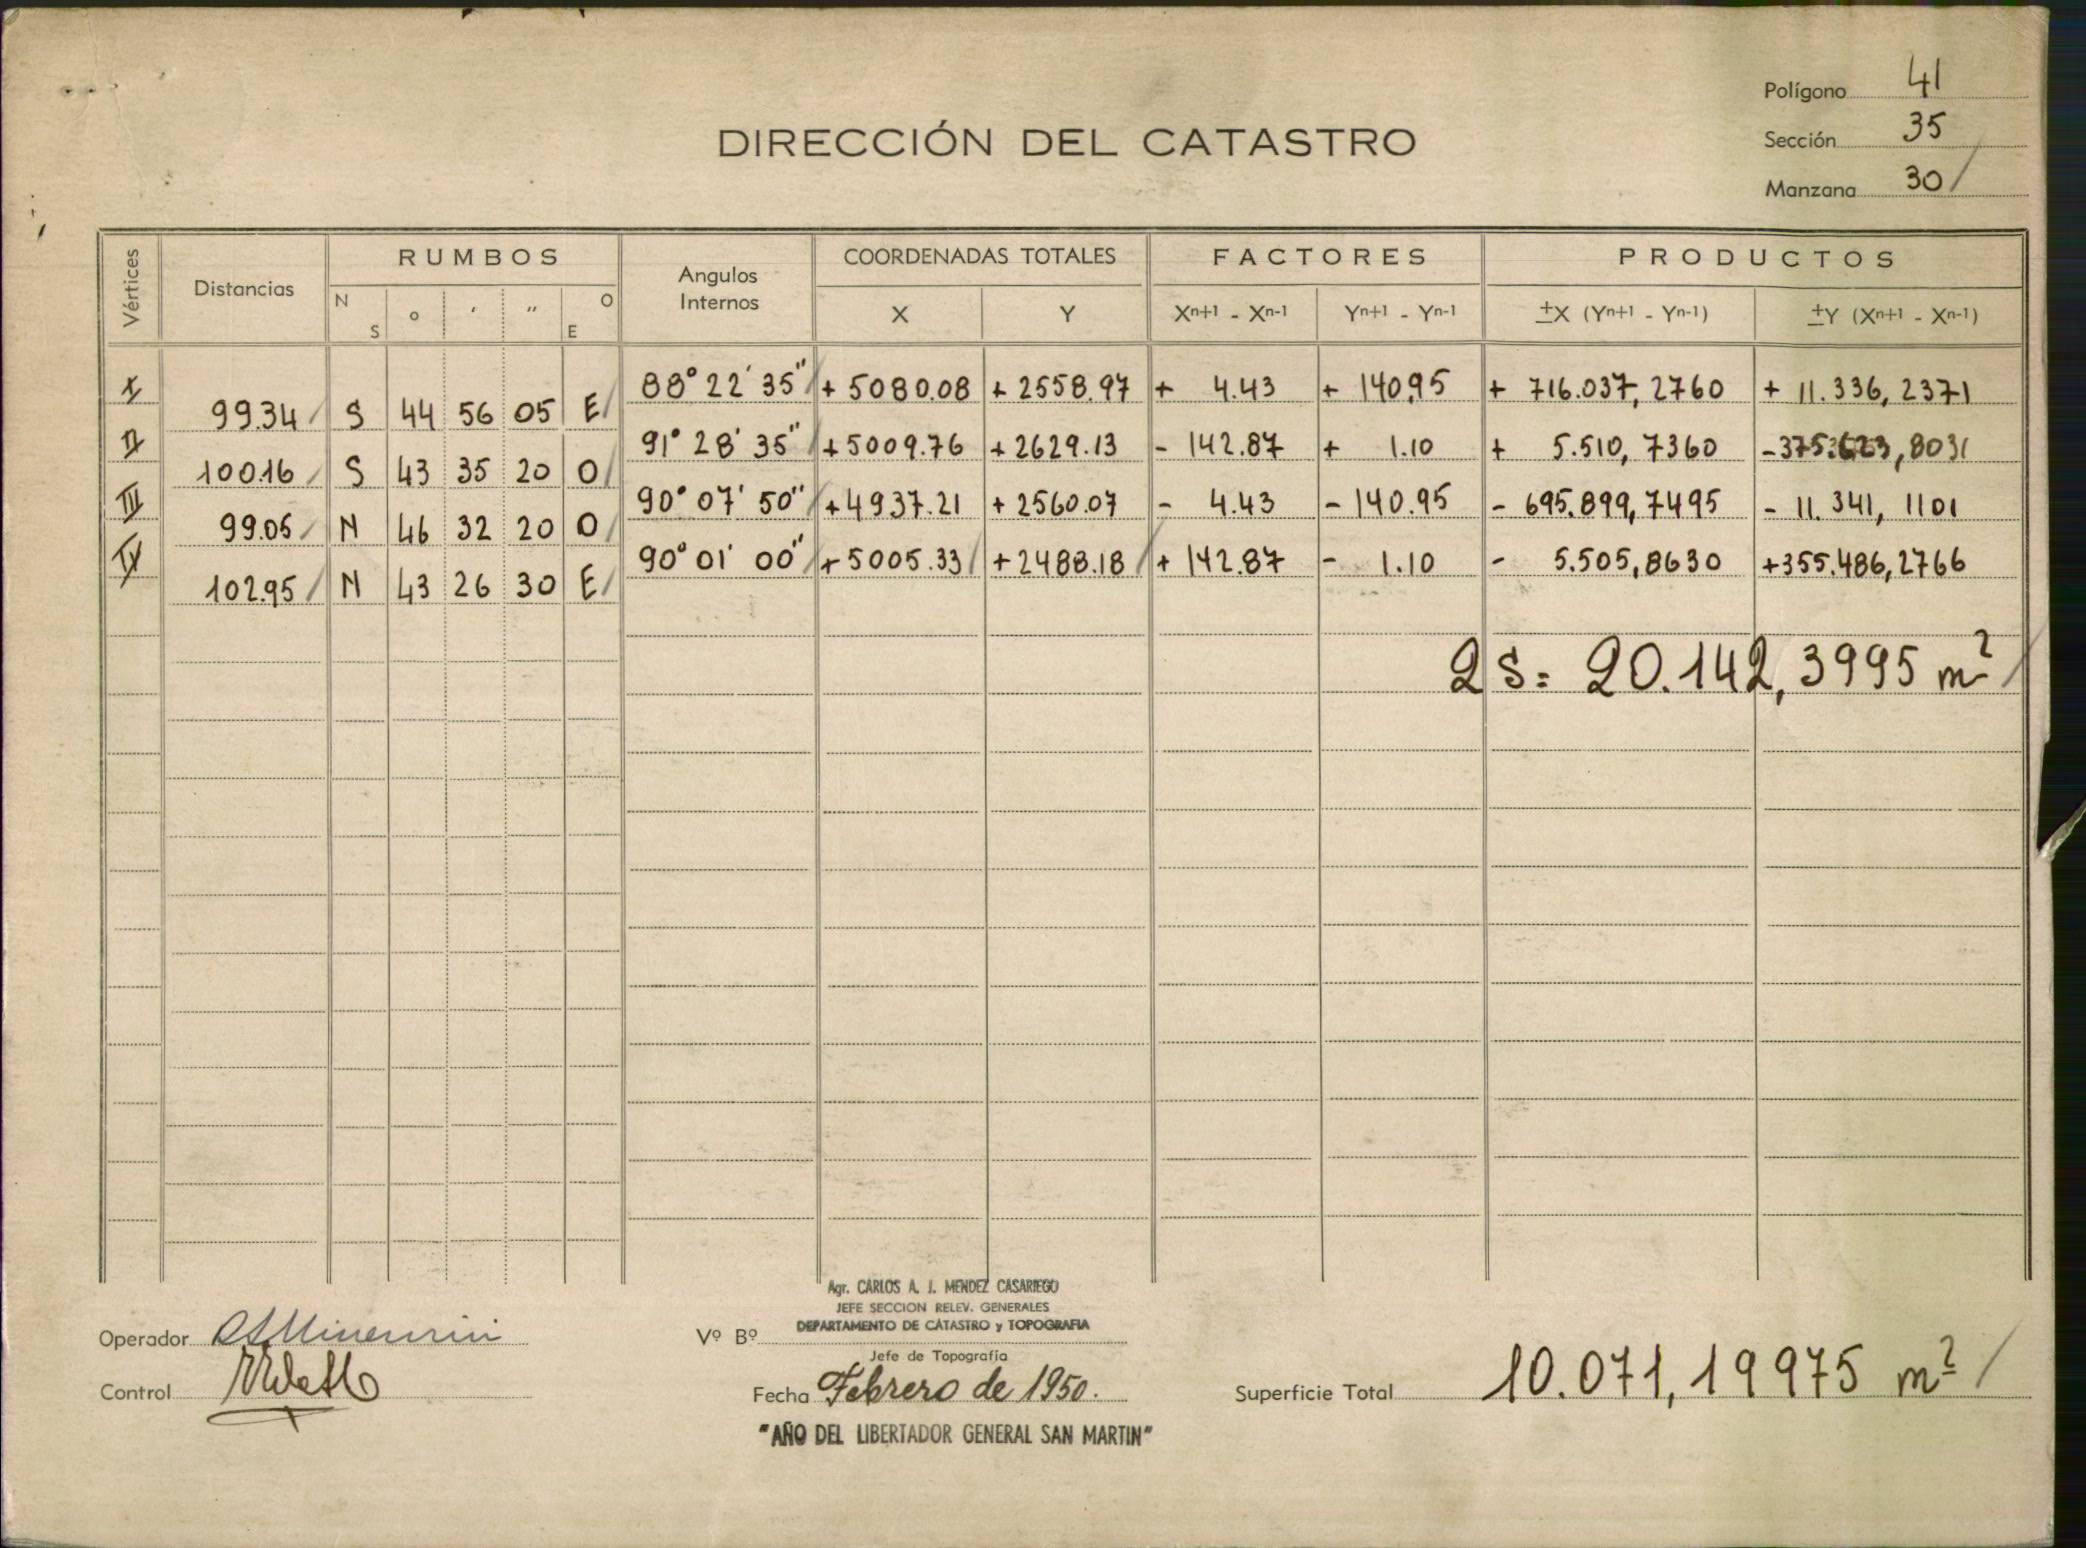 Polígono 41
Sección 35
Manzana 30
DIRECCIÓN DEL CATASTRO
Vértices Distancias RUMBOS Angulos Internos COORDENADAS TOTALES FACTORES PRODUCTOS
N S ° ′ ″ O E X Y Xn+1 - Xn-1 Yn+1 - Yn-1 ±X (Yn+1 - Yn-1) ±Y (Xn+1 - Xn-1)
I 88° 22′ 35″ + 5080.08 + 2558.97 + 4.43 + 140.95 + 716.037,2760 + 11.336,2371
99.34 S 44 56 05 E
II 91° 28′ 35″ + 5009.76 + 2629.13 - 142.87 + 1.10 + 5.510,7360 - 375.623,8031
100.16 S 43 35 20 O
III 90° 07′ 50″ + 4937.21 + 2560.07 - 4.43 - 140.95 - 695.899,7495 - 11.341,1101
99.05 N 46 32 20 O
IV 90° 01′ 00″ + 5005.33 + 2488.18 + 142.87 - 1.10 - 5.505,8630 + 355.486,2766
102.95 N 43 26 30 E
2 S = 20.142,3995 m²
Agr. CARLOS A. J. MENDEZ CASARIEGO
JEFE SECCION RELEV. GENERALES
DEPARTAMENTO DE CATASTRO y TOPOGRAFIA
Operador
Vº Bº
Jefe de Topografía
Control
Fecha Febrero de 1950.
Superficie Total 10.071,19975 m²
"AÑO DEL LIBERTADOR GENERAL SAN MARTIN"